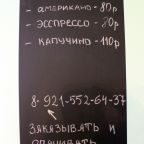 - АМЕРИКАНО - 80р
- ЭССПРЕССО - 80р
- КАПУЧИНО - 110р
8-921-552-64-37
ЗАКАЗЫВАТЬ И
ОПЛАЧИВАТЬ